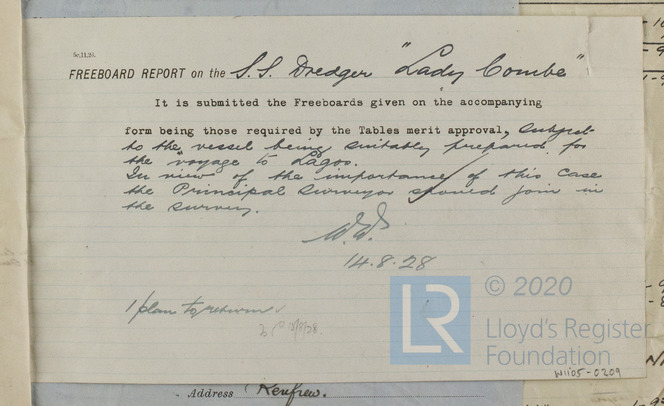 5c,11,26.
FREEBOARD REPORT on the S.S. Dredger "Lady Combe"
It is submitted the Freeboards given on the accompanying
form being those required by the Tables merit approval, subject
to the vessel being suitably prepared for
the voyage to Lagos.
In view of the importance of this case
the Principal Surveyor should join in
the survey.
W.W.
14.8.28
1 plan to return
© 2020
LR
Lloyd's Register
Foundation
W1105-0209
Address Renfrew.